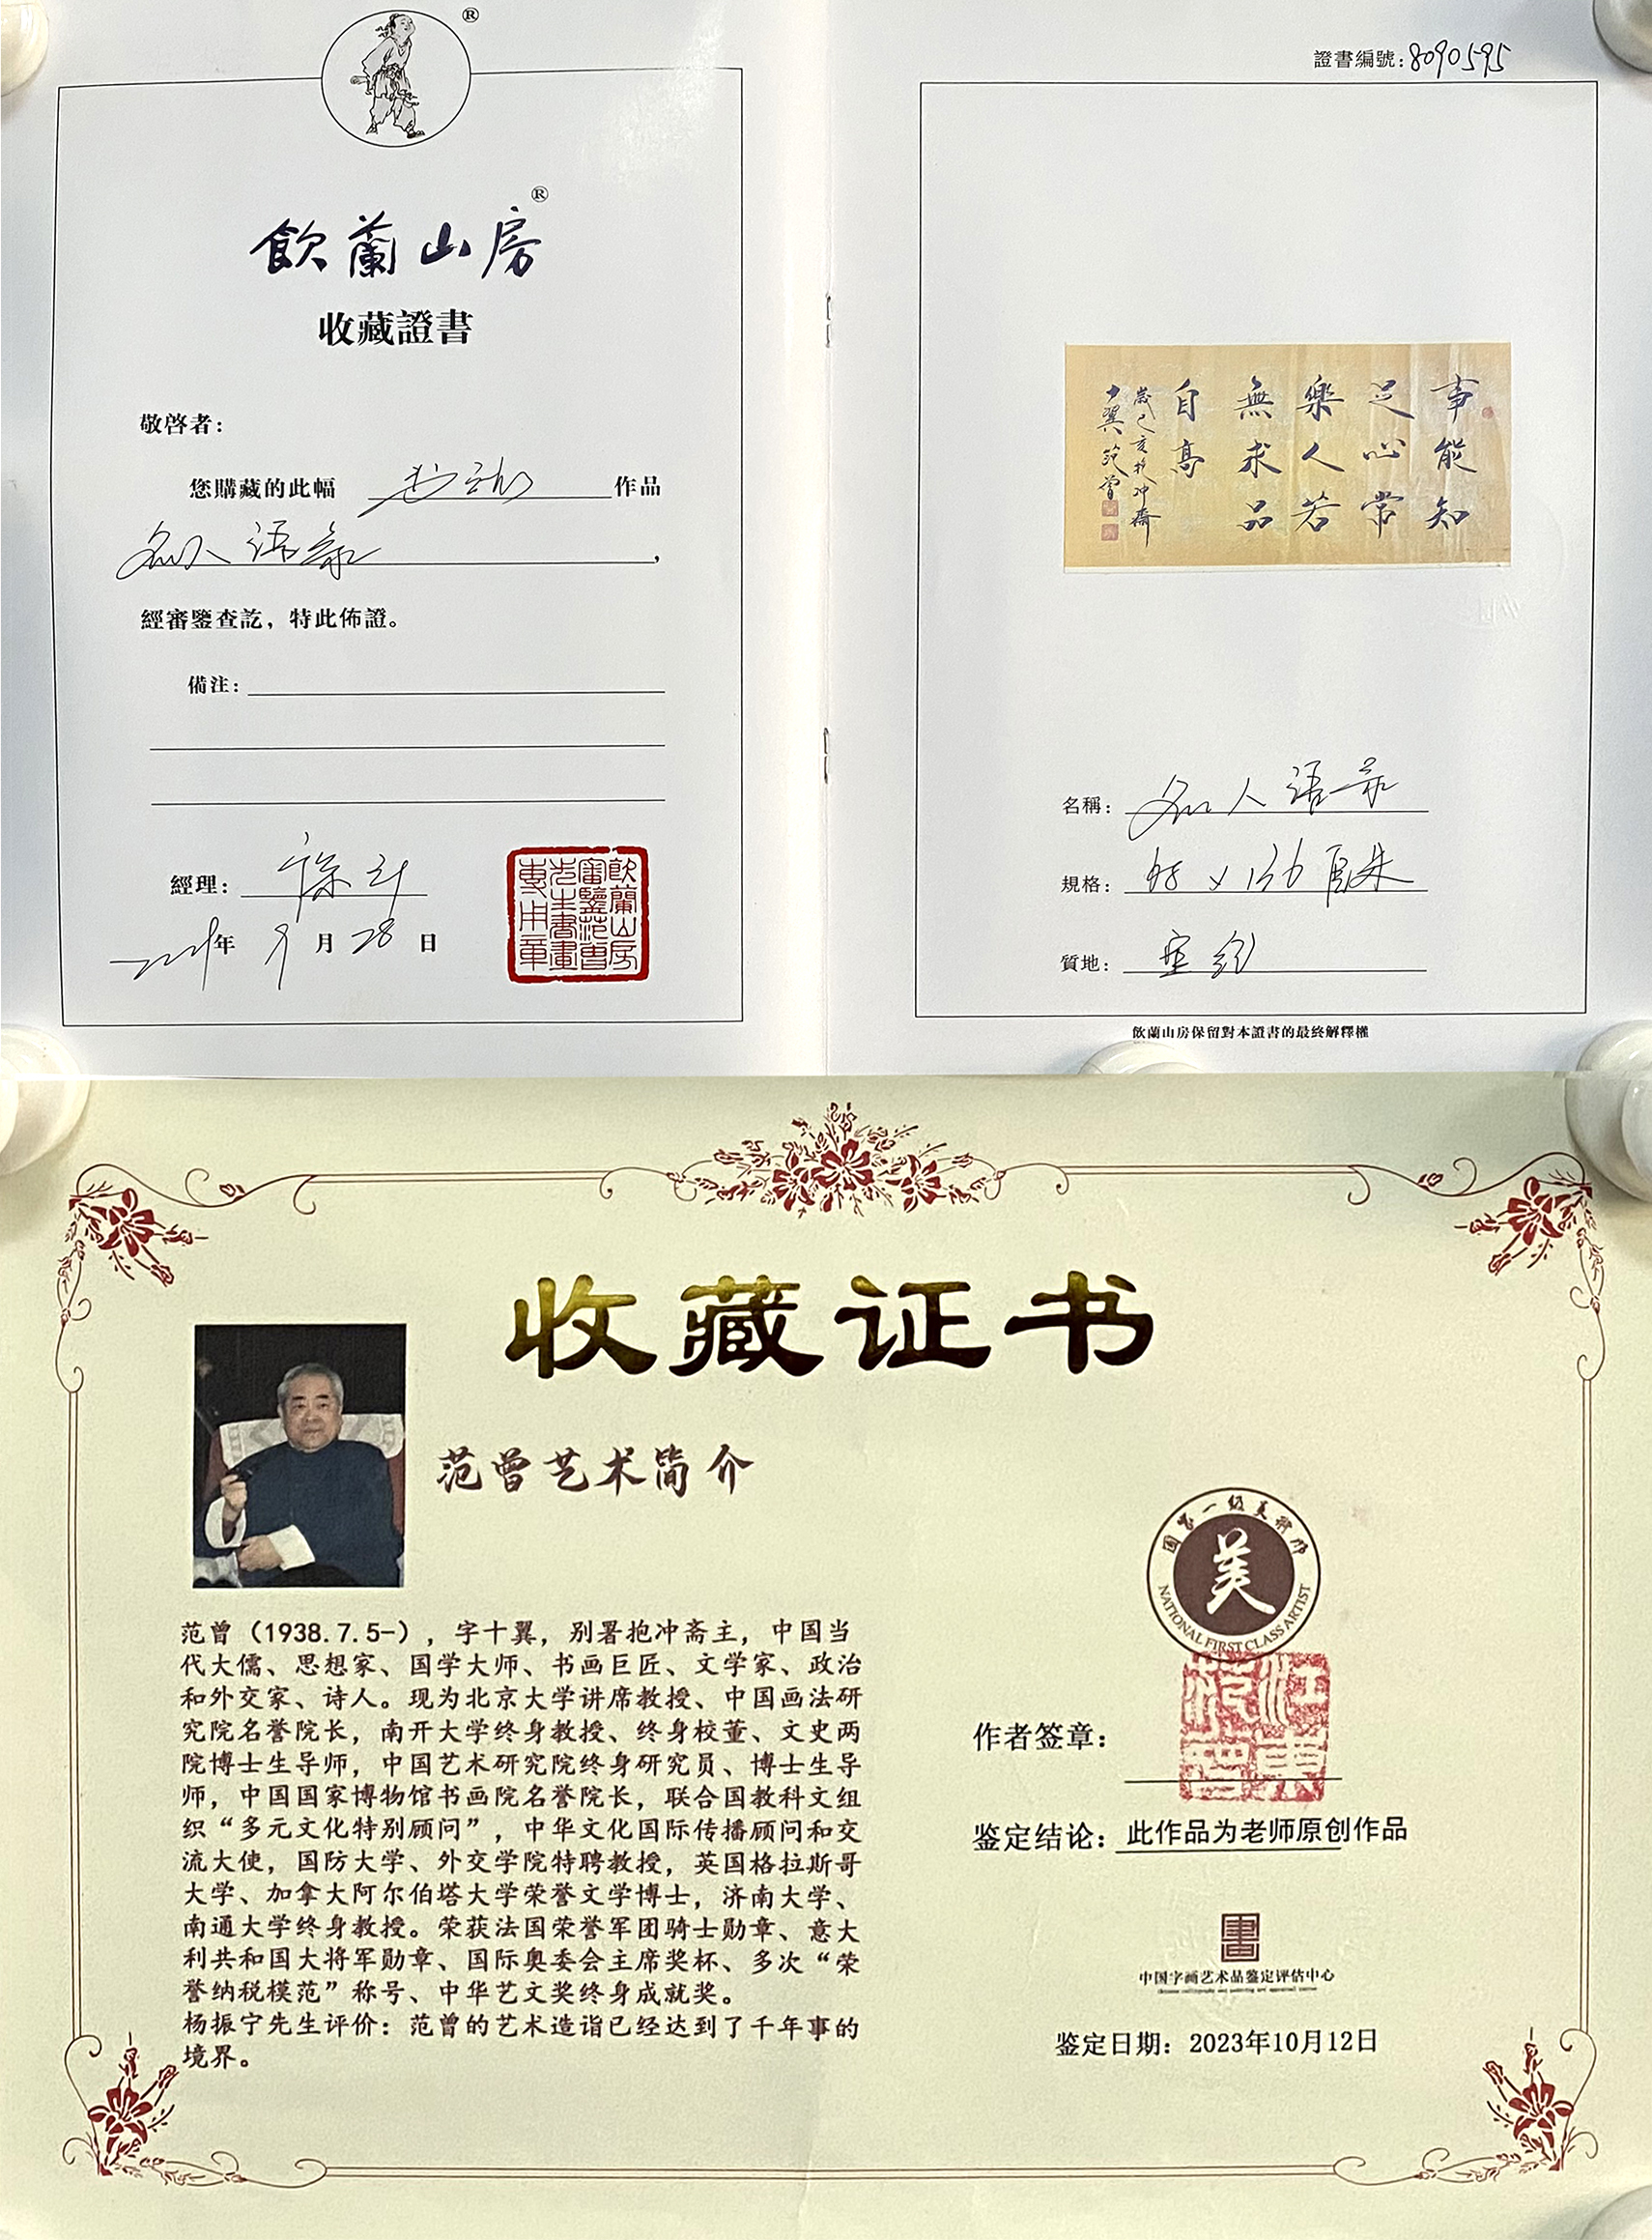 ®
飲蘭山房®
收藏證書
敬啓者：
您購藏的此幅 作品
名人语录，
經審鑒查訖，特此佈證。
備注：
經理：徐
年 9 月 28 日
飲蘭山房
審鑒范曾
先生書畫
專用章
證書編號：8090595
事能知
足心常
樂人若
無求品
自高
歲己亥抱冲齋
十翼范曾
名稱：名人语录
規格：
質地：宣纸
飲蘭山房保留對本證書的最終解釋權
收藏证书
范曾艺术简介
范曾（1938.7.5-），字十翼，别署抱冲斋主，中国当
代大儒、思想家、国学大师、书画巨匠、文学家、政治
和外交家、诗人。现为北京大学讲席教授、中国画法研
究院名誉院长，南开大学终身教授、终身校董、文史两
院博士生导师，中国艺术研究院终身研究员、博士生导
师，中国国家博物馆书画院名誉院长，联合国教科文组
织“多元文化特别顾问”，中华文化国际传播顾问和交
流大使，国防大学、外交学院特聘教授，英国格拉斯哥
大学、加拿大阿尔伯塔大学荣誉文学博士，济南大学、
南通大学终身教授。荣获法国荣誉军团骑士勋章、意大
利共和国大将军勋章、国际奥委会主席奖杯、多次“荣
誉纳税模范”称号、中华艺文奖终身成就奖。
杨振宁先生评价：范曾的艺术造诣已经达到了千年事的
境界。
国家一级美术师
美
NATIONAL FIRST CLASS ARTIST
作者签章：
鉴定结论：此作品为老师原创作品
書
中国字画艺术品鉴定评估中心
鉴定日期：2023年10月12日